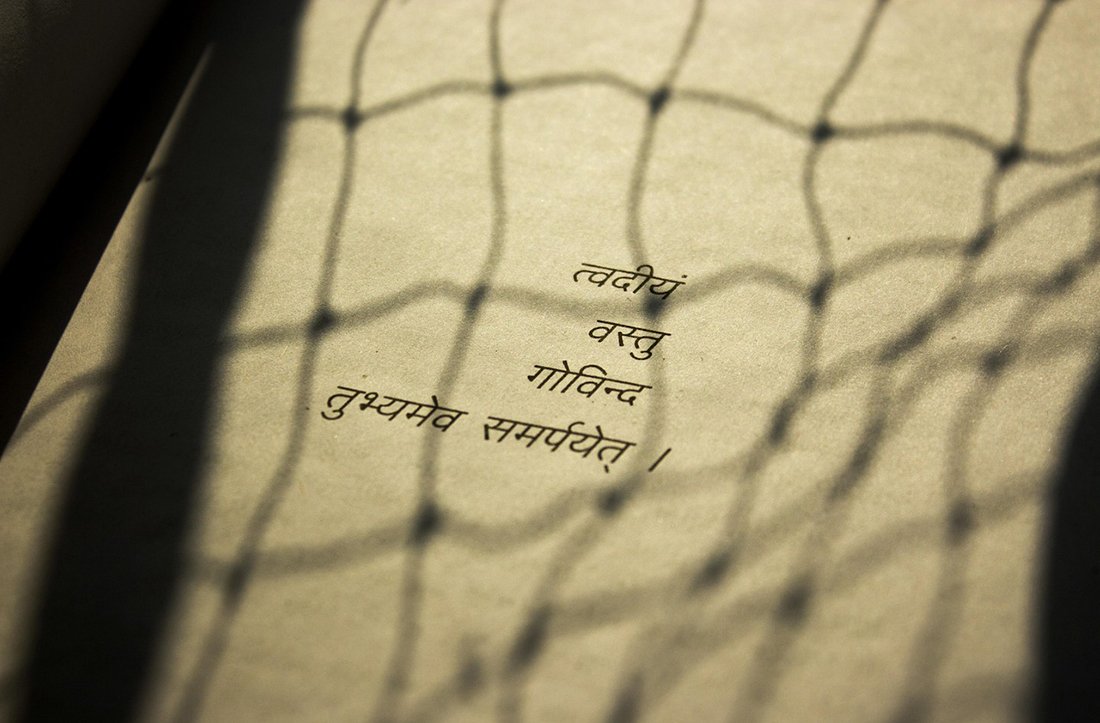 त्वदीयं
वस्तु
गोविन्द
तुभ्यमेव समर्पयेत् ।